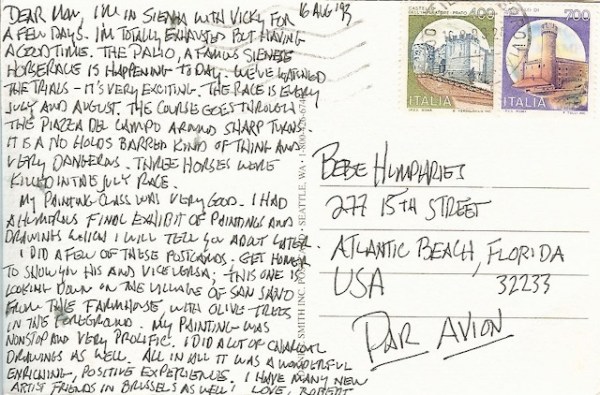 16 AUG '93
DEAR MOM, I'M IN SIENNA WITH VICKY FOR
A FEW DAYS. I'M TOTALLY EXHAUSTED BUT HAVING
A GOOD TIME. THE PALIO, A FAMOUS SIENESE
HORSERACE IS HAPPENING TODAY. WE'VE WATCHED
THE TRIALS - IT'S VERY EXCITING. THE RACE IS EVERY
JULY AND AUGUST. THE COURSE GOES THROUGH
THE PIAZZA DEL CAMPO AROUND SHARP TURNS.
IT IS A NO HOLDS BARRED KIND OF THING AND
VERY DANGEROUS. THREE HORSES WERE
KILLED IN THE JULY RACE.
MY PAINTING CLASS WAS VERY GOOD. I HAD
A HUMOROUS FINAL EXHIBIT OF PAINTINGS AND
DRAWINGS WHICH I WILL TELL YOU ABOUT LATER.
I DID A FEW OF THESE POSTCARDS. GET HOMER
TO SHOW YOU HIS AND VICE VERSA; THIS ONE IS
LOOKING DOWN ON THE VILLAGE OF SAN SANO
FROM THE FARMHOUSE, WITH OLIVE TREES
IN THE FOREGROUND. MY PAINTING WAS
NONSTOP AND VERY PROLIFIC. I DID A LOT OF CHARCOAL
DRAWINGS AS WELL. ALL IN ALL IT WAS A WONDERFUL
ENRICHING, POSITIVE EXPERIENCE. I HAVE MANY NEW
ARTIST FRIENDS IN BRUSSELS AS WELL! LOVE, ROBERT
SMITH INC. SEATTLE, WA
400
ITALIA
700
ITALIA
BEBE HUMPHRIES
277 15TH STREET
ATLANTIC BEACH, FLORIDA
USA 32233
PAR AVION